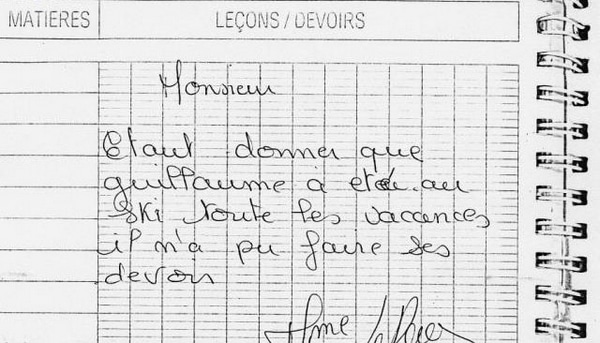 MATIERES
LEÇONS / DEVOIRS
Monsieur
Etant donner que
guillaume à etée au
ski toute les vacances
il n'a pu faire ses
devoirs
Mme